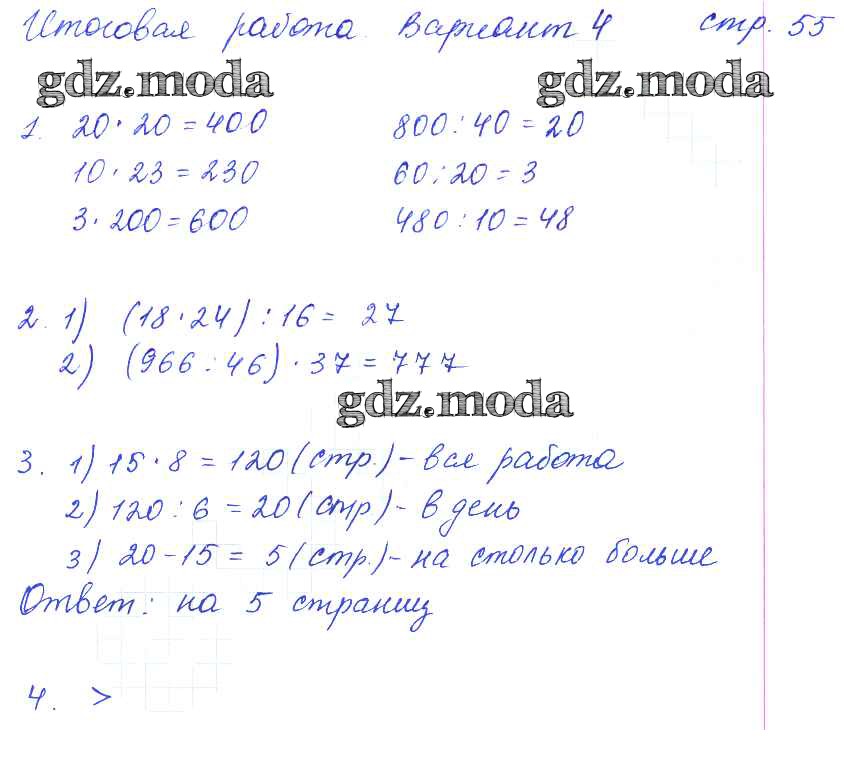 Итоговая работа. Вариант 4 стр. 55
gdz.moda gdz.moda
1. 20 · 20 = 400 800 : 40 = 20
10 · 23 = 230 60 : 20 = 3
3 · 200 = 600 480 : 10 = 48
2. 1) (18 · 24) : 16 = 27
2) (966 : 46) · 37 = 777
gdz.moda
3. 1) 15 · 8 = 120 (стр.) - вся работа
2) 120 : 6 = 20 (стр) - в день
3) 20 - 15 = 5 (стр.) - на столько больше
Ответ: на 5 страниц
4. >